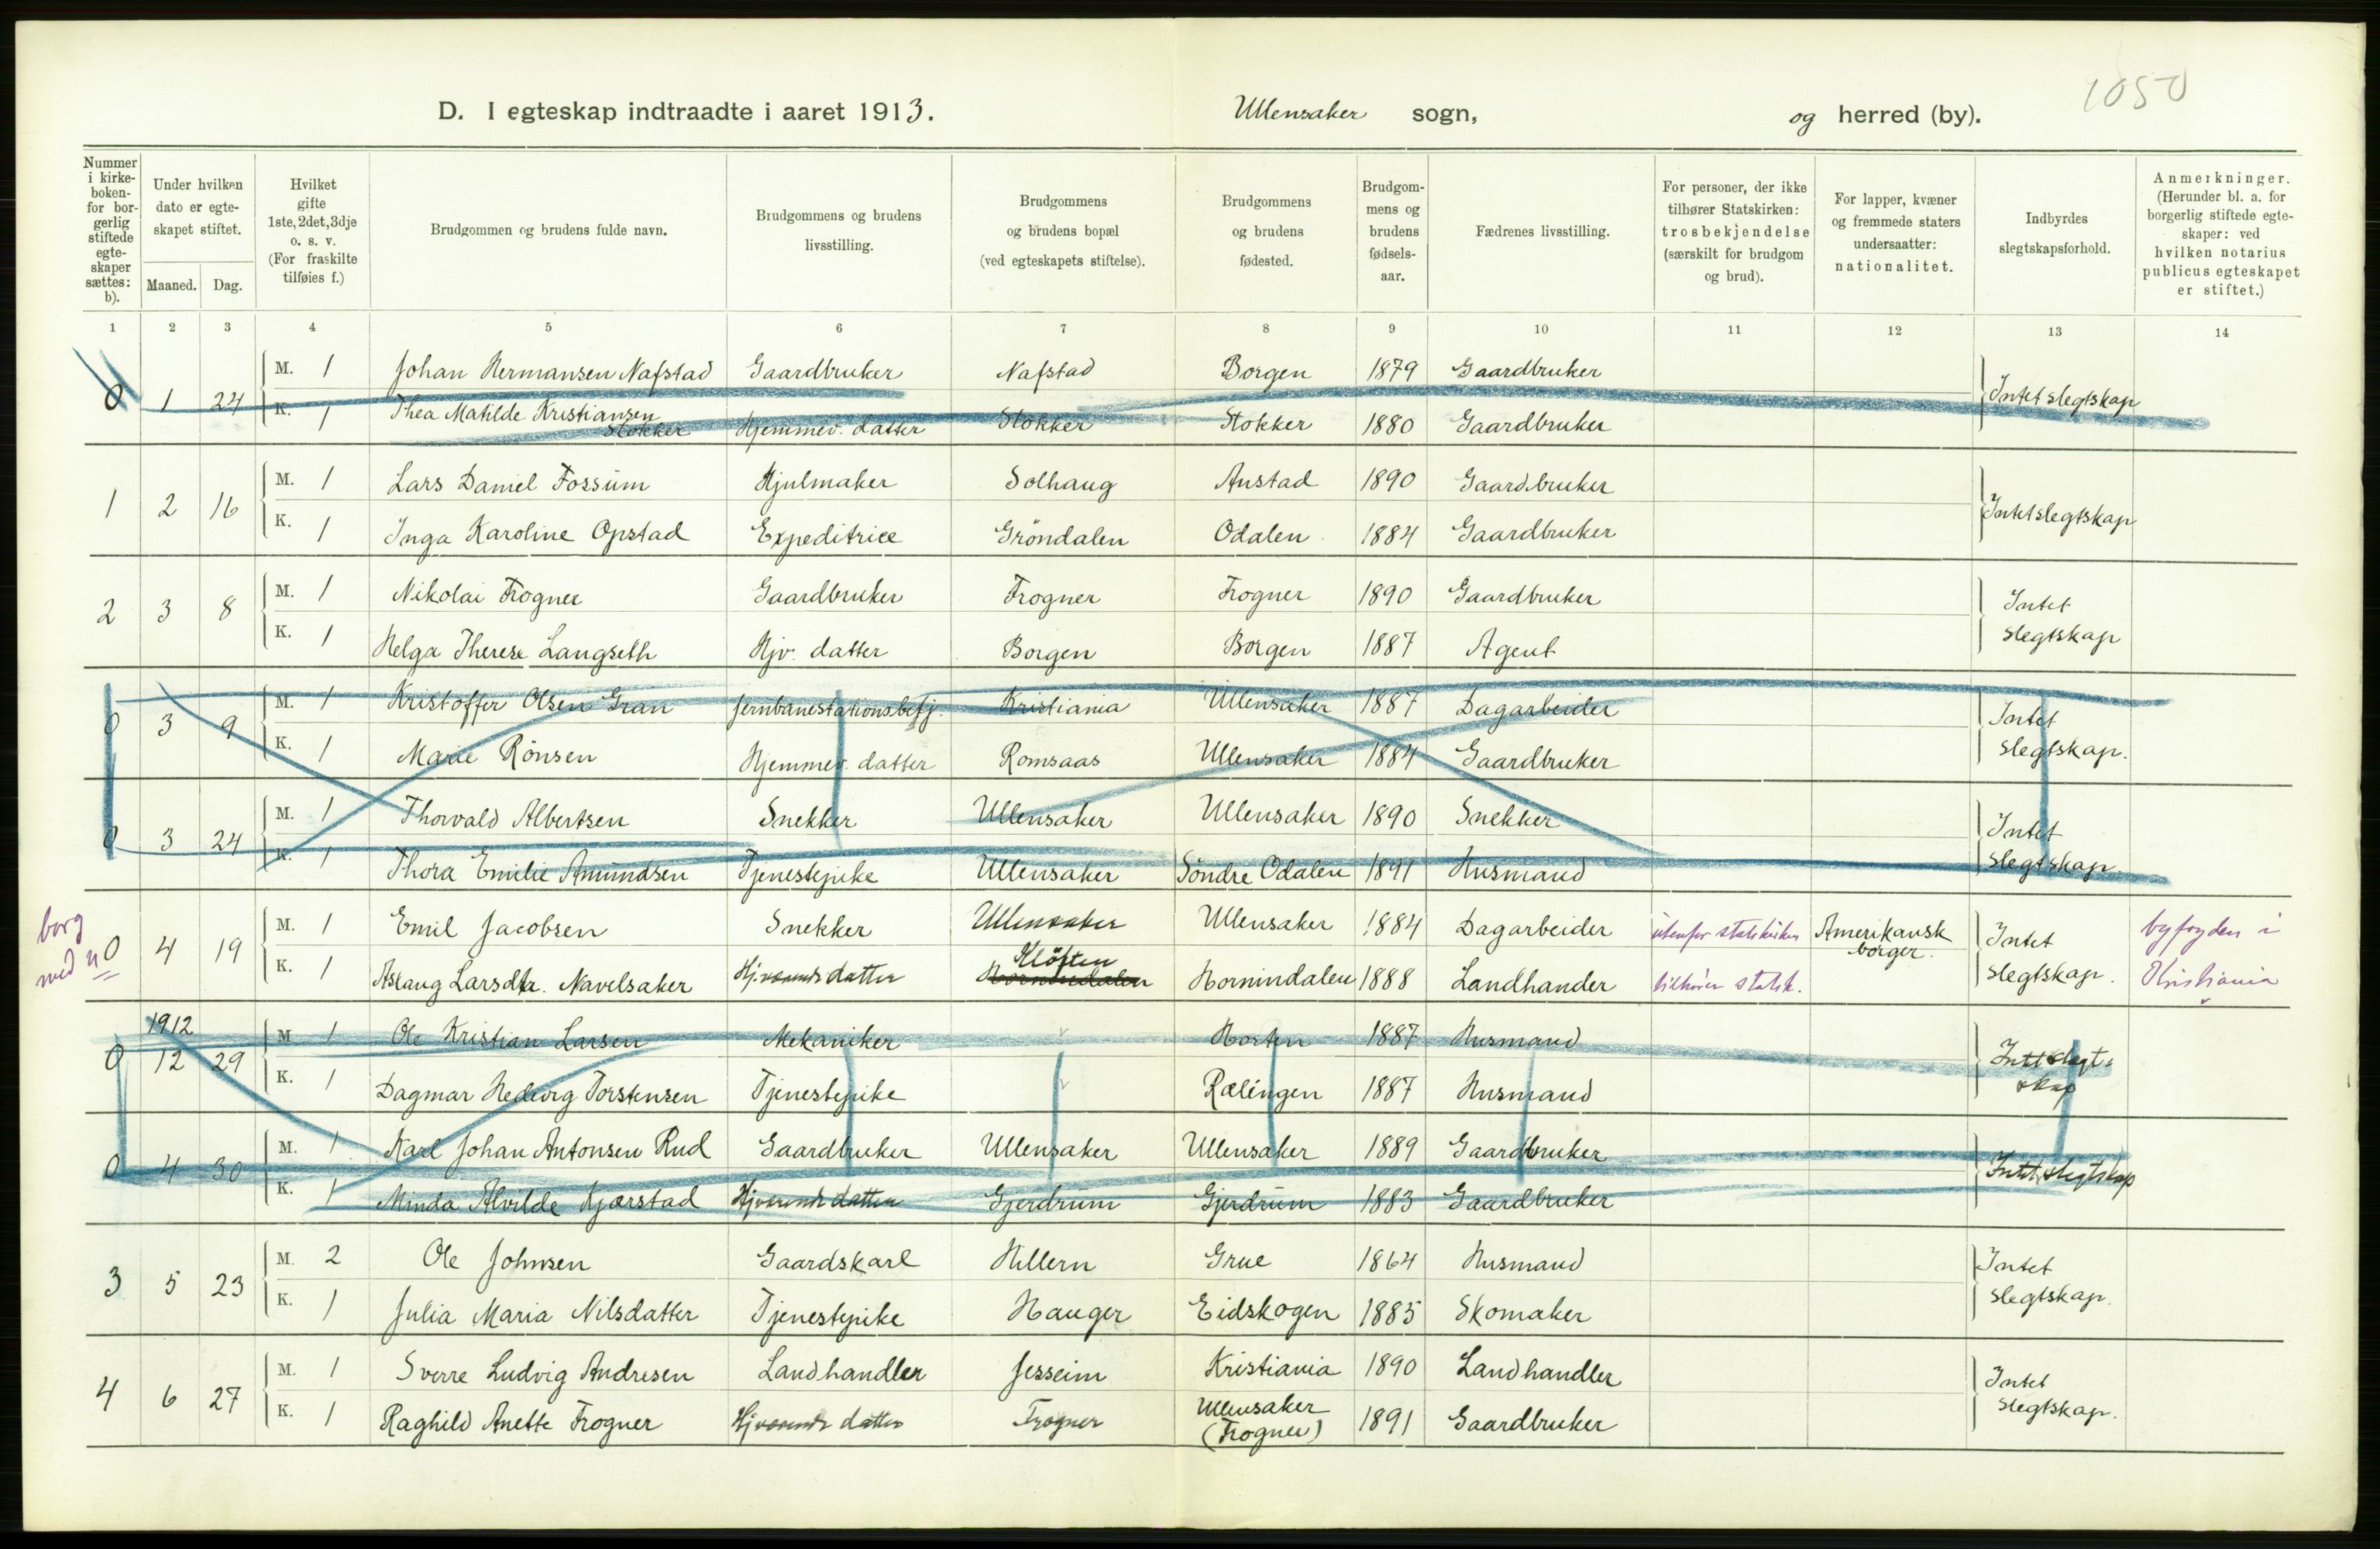 1050
D. I egteskap indtraadte i aaret 1913. Ullensaker sogn, og herred (by).
Nummer i kirkeboken- for borgerlig stiftede egteskaper sættes: b).
Under hvilken dato er egteskapet stiftet.
Maaned. Dag.
Hvilket gifte 1ste, 2det, 3dje o. s. v. (For fraskilte tilføies f.)
Brudgommen og brudens fulde navn.
Brudgommens og brudens livsstilling.
Brudgommens og brudens bopæl (ved egteskapets stiftelse).
Brudgommens og brudens fødested.
Brudgommens og brudens fødselsaar.
Fædrenes livsstilling.
For personer, der ikke tilhører Statskirken: trosbekjendelse (særskilt for brudgom og brud).
For lapper, kvæner og fremmede staters undersaatter: nationalitet.
Indbyrdes slegtskapsforhold.
Anmerkninger. (Herunder bl. a. for borgerlig stiftede egteskaper: ved hvilken notarius publicus egteskapet er stiftet.)
1 2 3 4 5 6 7 8 9 10 11 12 13 14
0 1 24 M. 1 Johan Hermansen Nafstad Gaardbruker Nafstad Borgen 1879 Gaardbruker Intet slegtskap
K. 1 Thea Matilde Kristiansen Stokker Hjemmev. datter Stokker Stokker 1880 Gaardbruker
1 2 16 M. 1 Lars Daniel Fossum Hjulmaker Solhaug Austad 1890 Gaardbruker Intet slegtskap
K. 1 Inga Karoline Opstad Expeditrice Gröndalen Odalen 1884 Gaardbruker
2 3 8 M. 1 Nikolai Frogner Gaardbruker Frogner Frogner 1890 Gaardbruker Intet slegtskap
K. 1 Helga Therese Langseth Hjv. datter Borgen Borgen 1887 Agent
0 3 9 M. 1 Kristoffer Olsen Gran Jernbanestationsbetj. Kristiania Ullensaker 1887 Dagarbeider Intet slegtskap.
K. 1 Marie Rönsen Hjemmev. datter Romsaas Ullensaker 1884 Gaardbruker
0 3 24 M. 1 Thorvald Albertsen Snekker Ullensaker Ullensaker 1890 Snekker Intet slegtskap.
K. 1 Thora Emilie Amundsen Tjenestepike Ullensaker Söndre Odalen 1891 Husmand
borg med n 0 4 19 M. 1 Emil Jacobsen Snekker Ullensaker Ullensaker 1884 Dagarbeider utenfor statskirken Amerikansk borger. Intet slegtskap. byfogden i Kristiania
K. 1 Aslaug Larsdtr. Navelsaker Hj.værende datter Klöften Hornindalen Hornindalen 1888 Landhander tilhører statsk.
1912
0 12 29 M 1 Ole Kristian Larsen Mekaniker Horten 1887 Husmand Intet slegtskap
K. 1 Dagmar Hedvig Torstensen Tjenestepike Rælingen 1887 Husmand
0 4 30 M. 1 Karl Johan Antonsen Rud Gaardbruker Ullensaker Ullensaker 1889 Gaardbruker Intet slegtskap
K. 1 Minda Alvilde Kjærstad Hjværende datter Gjerdrum Gjerdrum 1883 Gaardbruker
3 5 23 M. 2 Ole Johnsen Gaardskarl Hillern Grue 1864 Husmand Intet slegtskap.
K. 1 Julia Maria Nilsdatter Tjenestepike Hauger Eidskogen 1885 Skomaker
4 6 27 M. 1 Sverre Ludvig Andresen Landhandler Jesseim Kristiania 1890 Landhandler Intet slegtskap.
K. 1 Raghild Anette Frogner Hjværende datter Frogner Ullensaker (Frogner) 1891 Gaardbruker